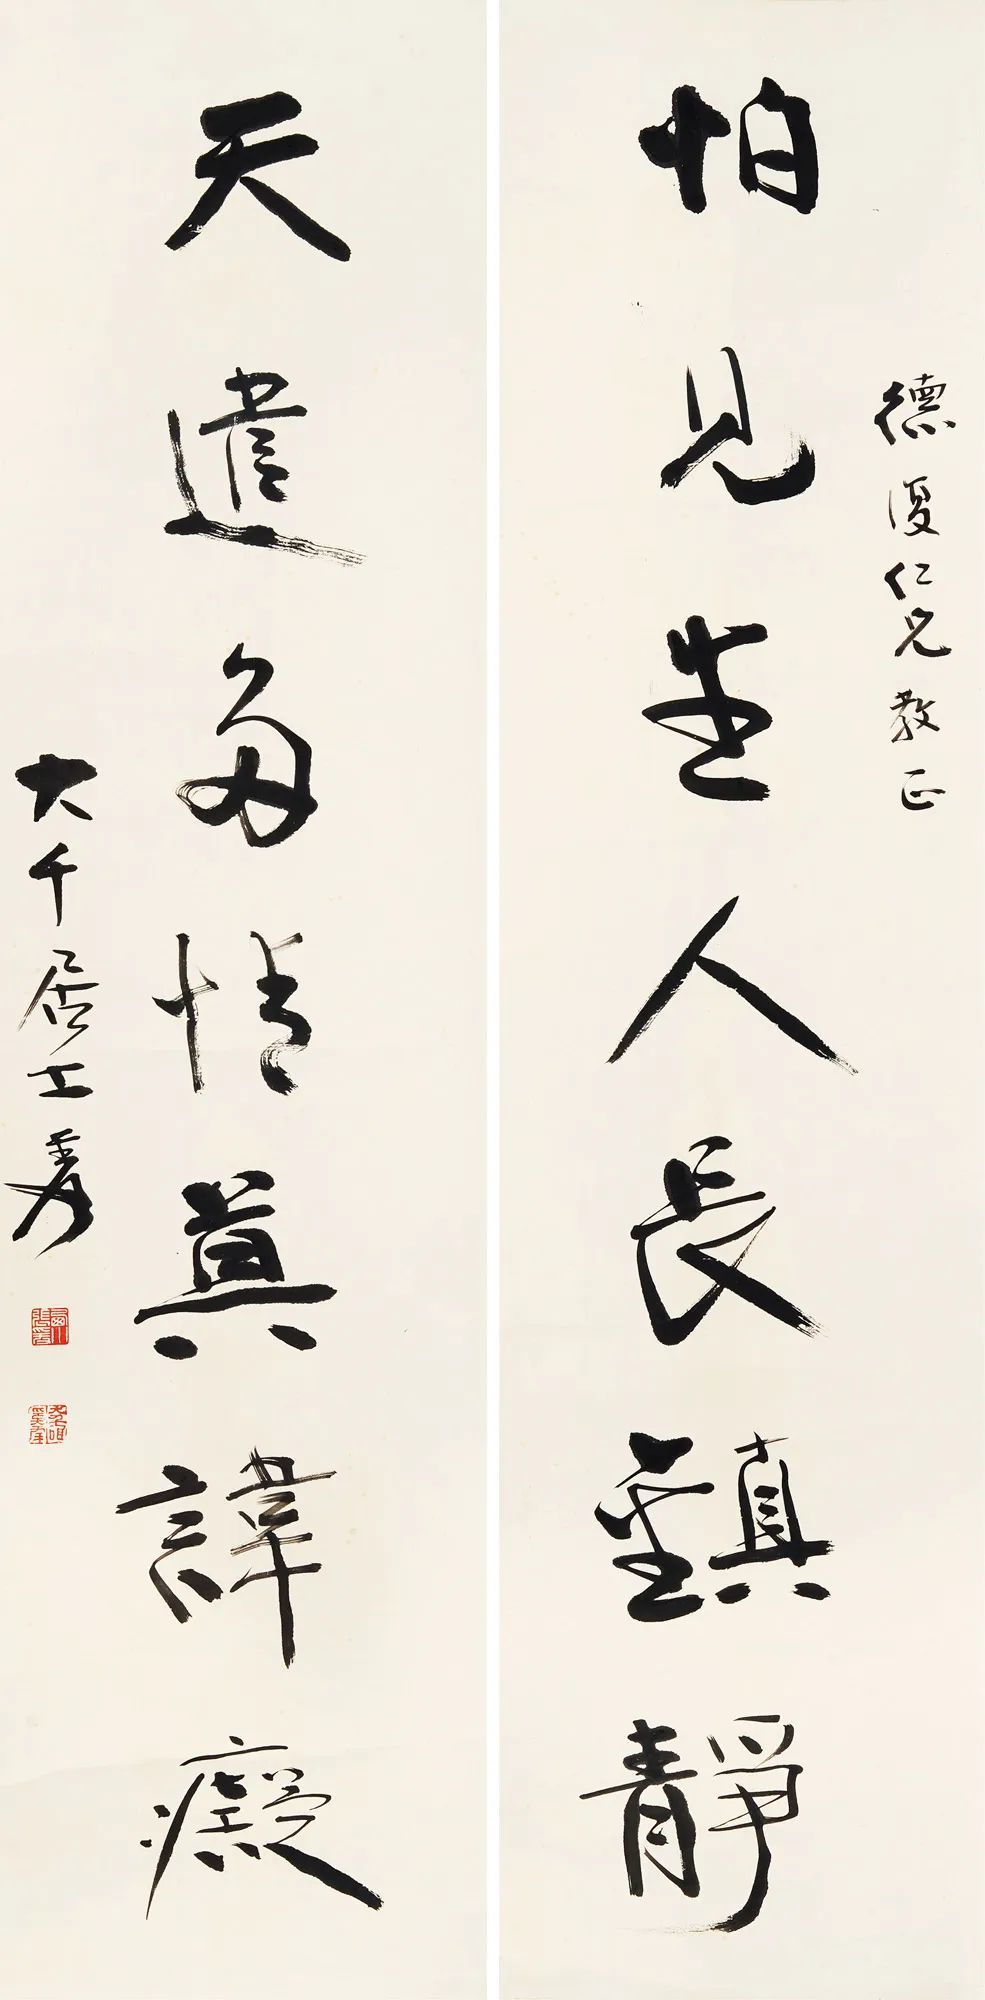 德復仁兄教正
怕見生人長鎮靜
天遣多情眞諱癡
大千居士爰